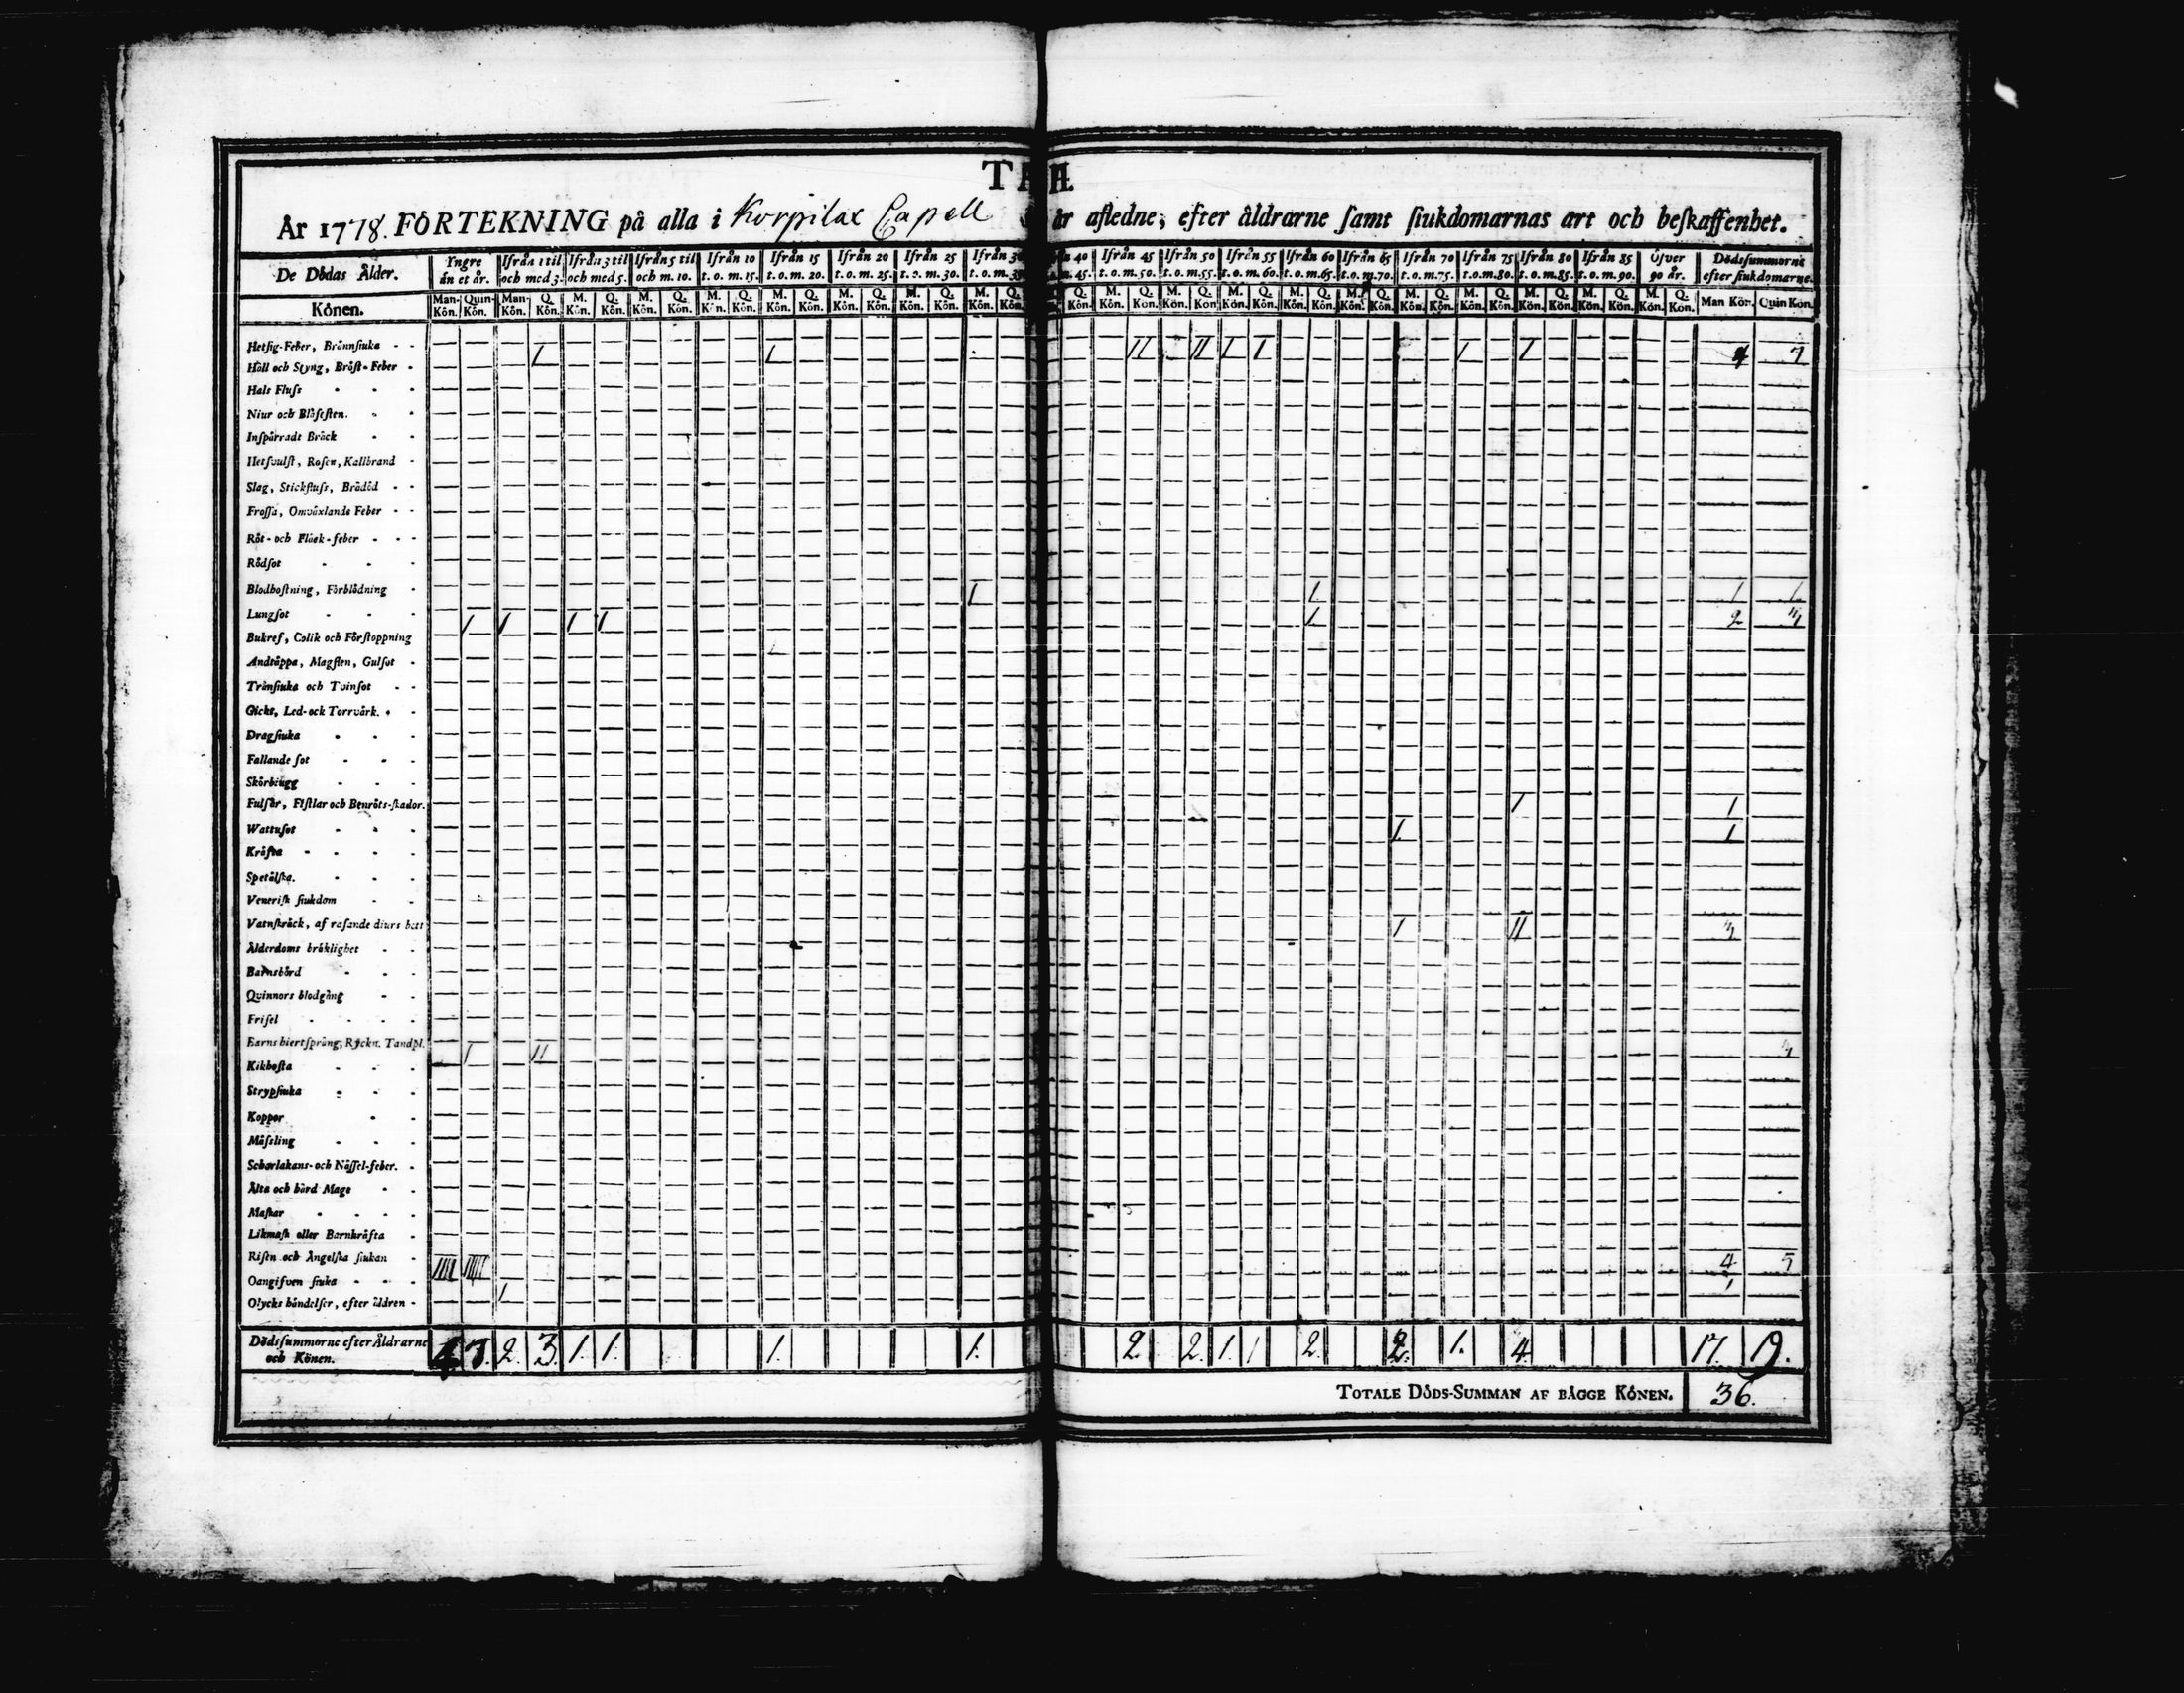 År 1778. FÖRTEKNING på alla i Korpilax Capell år afledne, efter åldrarne samt siukdomarnas art och beskaffenhet.
De Dödas Ålder. Yngre än et år. Ifrån 1 til och med 3. Ifrån 3 til och med 5. Ifrån 5 til och m. 10. Ifrån 10 t. o. m. 15. Ifrån 15 t. o. m. 20. Ifrån 20 t. o. m. 25. Ifrån 25 t. o. m. 30. Ifrån t. o. m. 40 m. 45. Ifrån 45 t. o. m. 50. Ifrån 50 t. o. m. 55. Ifrån 55 t. o. m. 60. Ifrån 60 t. o. m. 65. Ifrån 65 t. o. m. 70. Ifrån 70 t. o. m. 75. Ifrån 75 t. o. m. 80. Ifrån 80 t. o. m. 85. Ifrån 85 t. o. m. 90. Öfver 90 år. Dödssummorne efter siukdomarne.
Könen. Man-Kön. Quin-Kön. Man-Kön. Q. Kön. M. Kön. Q. Kön. M. Kön. Q. Kön. M. Kön. Q. Kön. M. Kön. Q. Kön. M. Kön. Q. Kön. M. Kön. Q. Kön. M. Kön. Q. Kön. Q. Kön. M. Kön. Q. Kön. M. Kön. Q. Kön. M. Kön. Q. Kön. M. Kön. Q. Kön. M. Kön. Q. Kön. M. Kön. Q. Kön. M. Kön. Q. Kön. M. Kön. Q. Kön. M. Kön. Q. Kön. M. Kön. Q. Kön. Man Kön. Quin Kön.
Hetsig-Feber, Brännsiuka
Håll och Styng, Bröst-Feber I I II II I I I I 4 7
Hals Fluss
Niur och Blåsesten.
Inspärradt Bråck
Hetsvulst, Rosen, Kallbrand
Slag, Stickfluss, Brådöd
Frossa, Omväxlande Feber
Röt- och Fläck-feber
Rödsot
Blodhostning, Förblödning I I 1 1
Lungsot I I I I I 2 3
Bukref, Colik och Förstoppning
Andtäppa, Magsten, Gulsot
Trånsiuka och Tvinsot
Gickt, Led- och Torrvärk.
Dragsiuka
Fallande sot
Skörbiugg
Fulsår, Fistlar och Benröts-skador. I 1
Wattusot I 1
Kräfta
Spetälska.
Venerisk siukdom
Vatnskräck, af rasande diurs bett I II 3
Ålderdoms bräklighet
Barnsbörd
Qvinnors blodgång
Frisel
Barns hiertsprång, Ryckn. Tandpl. I II 3
Kikhosta
Strypsiuka
Koppor
Mässling
Scharlakans- och Nässel-feber.
Älta och hård Mage
Maskar
Likmask eller Barnkräfta
Risen och Ångelska siukan IIII IIIII 4 5
Oangifven siuka I 1
Olycks händelser, efter äldren
Dödssummorne efter Åldrarne och Könen. 4 7. 2. 3. 1. 1. 1. 1. 2. 2. 1. 1 2. 2. 1. 4 17. 19.
TOTALE DÖDS-SUMMAN AF BÅGGE KÖNEN. 36.